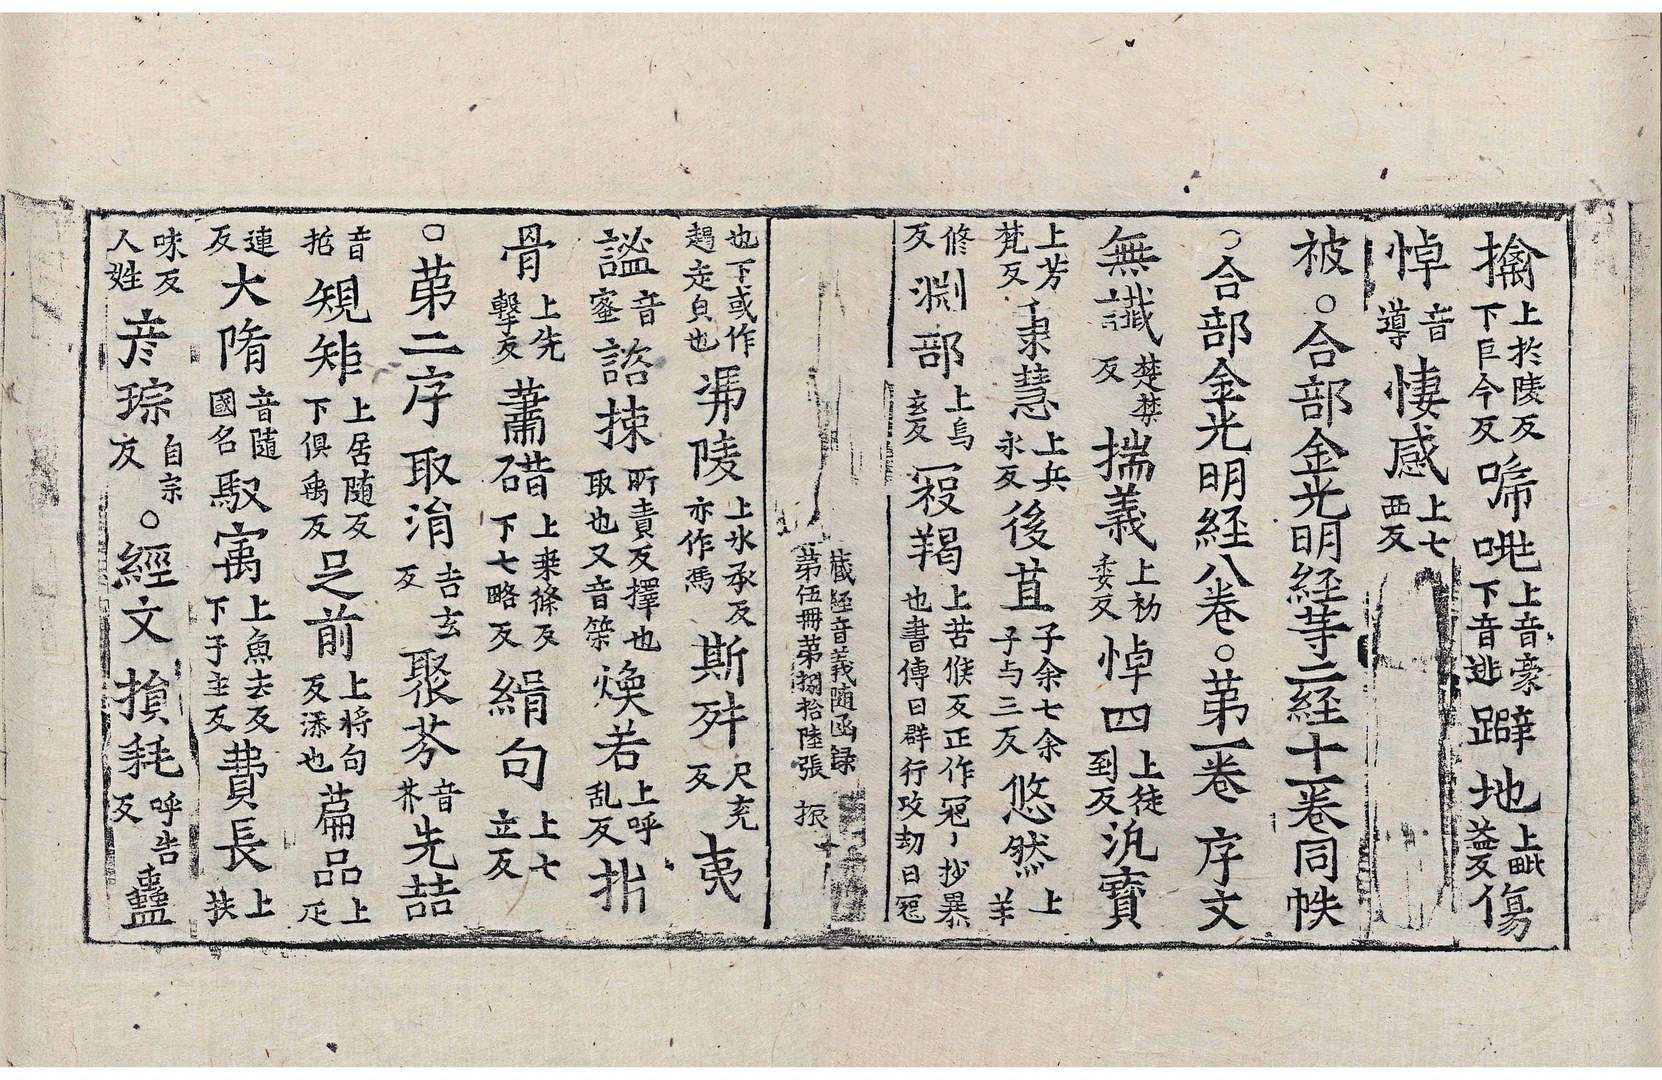 擒上扵陵反下巨今反啼咷上音豪下音逃躃地上毗益反傷
悼音導悽感上七西反
被○合部金光明経等二経十一卷同帙
○合部金光明経八卷○苐一卷 序文
無讖楚禁反揣義上初委反悼四上徒到反汎寶
上芳梵反秉慧上兵永反後苴子余七余子与三反悠然上羊
修反淵部上烏玄反㓂羯上苦候反正作冦〻抄暴也書傳曰群行攻劫曰冦
藏経音義随函録
苐伍冊苐捌拾陸張 振
也下或作趐走皃也凴陵上氷承反亦作馮斯舛尺兖反夷
謐音蜜諮揀所責反擇也取也又音策煥若上呼乱反析
骨上先擊反蕭碏上桒條反下七略反緝句上七立反
○苐二序 取涓吉玄反聚芥音芥先喆
音哲規矩上居随反下俱禹反足前上將句反添也篇品上疋
連反大隋音隨國名馭寓上魚去反下于主反費長上扶
味反人姓彦琮自宗反○經文 損耗呼告反蠱